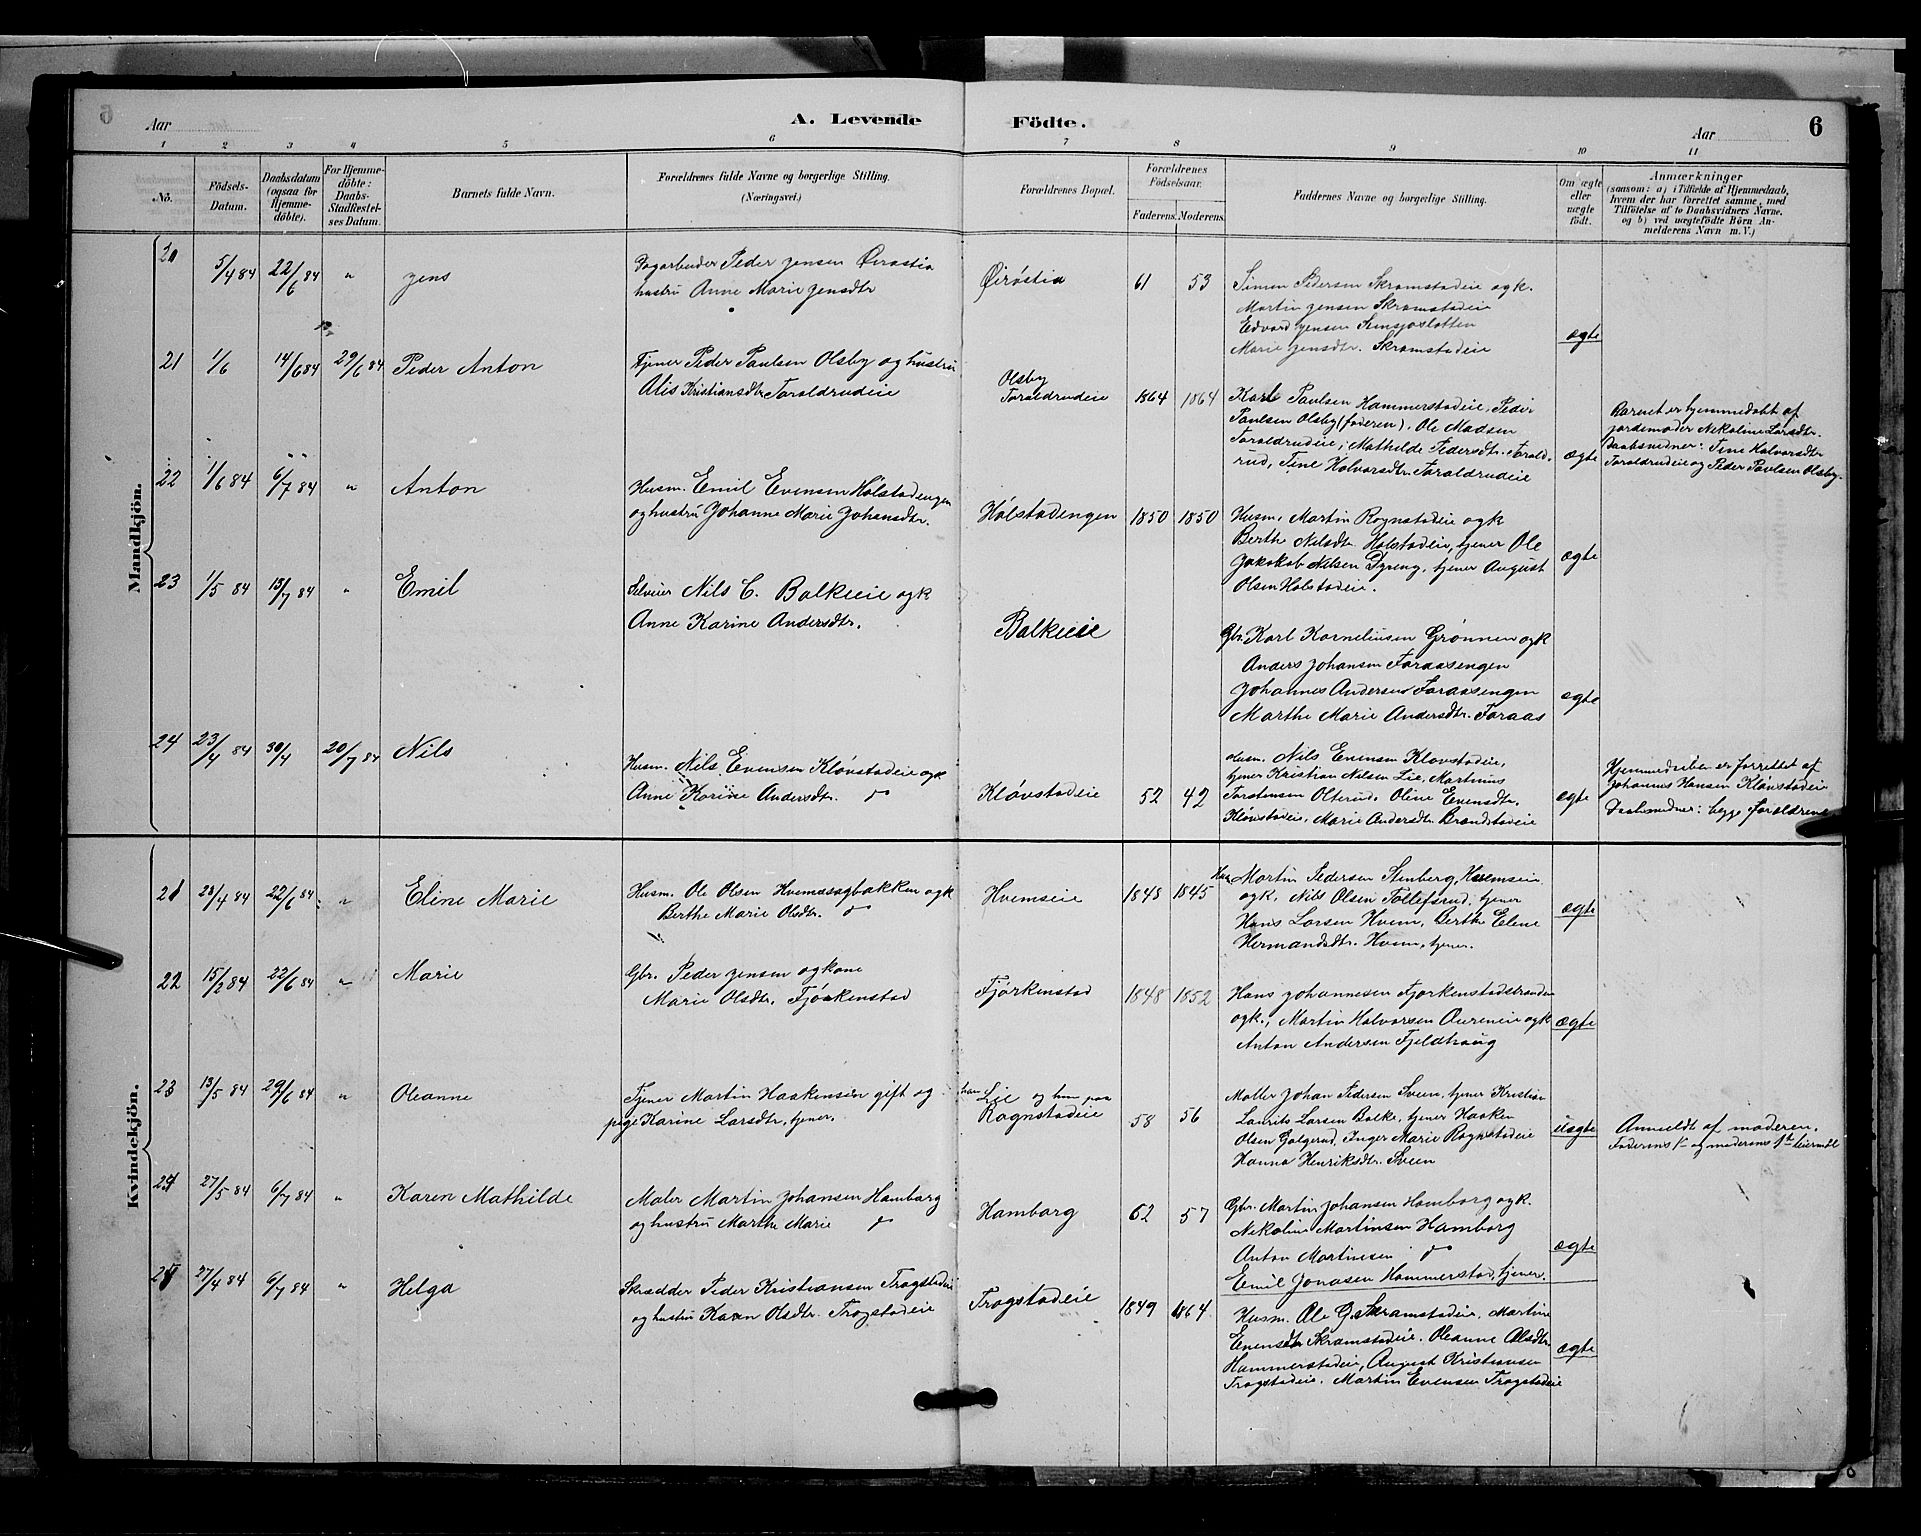 Aar
A. Levende
Födte.
Aar
6
1 2 3 4 5 6 7 8 9 10 11
No.
Födsels-Datum.
Daabsdatum (ogsaa for Hjemmedöbte).
For Hjemmedöbte: Daabs-Stadfæstelses Datum.
Barnets fulde Navn.
Forældrenes fulde Navne og borgerlige Stilling. (Næringsvei.)
Forældrenes Bopæl.
Forældrenes Födselsaar.
Faderens. Moderens.
Faddernes Navne og borgerlige Stilling.
Om ægte eller uægte födt.
Anmærkninger
(saasom: a) i Tilfælde af Hjemmedaab,
hvem der har forrettet samme, med
Tilföielse af to Daabsvidners Navne,
og b) ved uægtefödte Börn An-
melderens Navn m. V.)
Mandkjön.
20 5/4 84 22/6 84 " Jens
Peder Jensen
hustru Anne Marie Jensdtr
61 53
Simen Pedersen Skramstadeie ogk.
Martin Jensen Skramstadeie
Edvard Jensen
Marie Jensdtr. Skramstadeie
ægte
21 1/6 14/6 84 29/6 84 Peder Anton
Tjener Peder Paulsen Olsby og hustru
Alis Kristiansdtr Taraldrudeie
Olsby
Taraldrudeie 1864 1864
Karl Paulsen Hammerstadeie, Peder
Paulsen Olsby (faderen), Ole Madsen
Taraldrudeie, Mathilde Pedersdtr. Tarald-
rud, Tine Halvorsdtr Taraldrudeie
ægte
Barnet er hjemmedøbt af
jordemoder Nekoline Larsdtr.
Daabsvidner: Tine Halvorsdtr
Taraldrudeie og Peder Paulsen Olsby.
22 1/6 84 6/7 84 " Anton
Husm. Emil Evensen Hølstadengen
og hustru Johanne Marie Johansdtr.
Hølstadengen 1850 1850
Husm. Martin Rognstadeie ogk
Berthe Nilsdtr. Hølstadeie, tjener Ole
Jakokob Nilsen Dyreng, tjener August
Olsen Hølstadeie.
ægte
23 1/5 84 13/7 84 " Emil
Nils C. Balkeeie ogk
Anne Karine Andersdtr.
Balkeeie
Gbr. Karl Korneliusen Grønnen ogk
Anders Johansen Faraasengen
Johannes Andersen Faraasengen
Marthe Marie Andersdtr. Faraas
ægte
24 23/4 84 30/4 20/7 84 Nils
Husm. Nils Evensen Kløvstadeie ogk
Anne Karine Andersdtr. do
Kløvstadeie 52 42
Husm. Nils Evensen Kløvstadeie,
tjener Kristian Nilsen Lie, Martinus
Torstensen Olterud, Oline Evensdtr.
Kløvstadeie, Marie Andersdtr. Brandstadeie
ægte
Hjemmedaaben er forrettet af
Johannes Hansen Kløvstadeie
Daabsvidner: begge forældrene
Kvindekjön.
21 23/4 84 22/6 84 " Eline Marie
Husm. Ole Olsen Hvemsagbakken ogk
Berthe Marie Olsdtr. do
Hvemseie 1843 1845
Martin Pedersen Stenberg, Hvemseie
ogk, Nils Olsen Tollefsrud, tjener
Hans Larsen Hvem, Berthe Elene
Hermandsdtr. Hvem, tjener.
ægte
22 15/2 84 22/6 84 " Marie
Gbr. Peder Jensen og kone
Marie Olsdtr. Fjørkenstad
Fjørkenstad 1848 1852
Hans Johannesen Fjørkenstadstranden
ogk., Martin Halvorsen Aureneie ogk
Anton Andersen Fjeldhaug
ægte
23 13/5 84 29/6 84 " Oleanne
Tjener Martin Haakensen gift og
pige Karine Larsdtr, tjener.
han Lie og hun paa
Rognstadeie 58 56
Møller Johan Pedersen Sveen, tjener Kristian
Laurits Larsen Balke, tjener Haaken
Olsen Galgerud, Inger Marie Rognstadeie
Hanna Henriksdtr. Sveen
uægte
Anmeldt af moderen.
Faderens 1ste og moderens 1ste leiermaal
24 27/5 84 6/7 84 " Karen Mathilde
Maler Martin Johansen Hamborg
og hustru Marthe Marie do
Hamborg 62 57
Gbr. Martin Johansen Hamborg ogk.
Nikoline Martinsen Hamborg
Anton Martinsen do
Emil Jonasen Hammerstad, tjener.
ægte
25 27/4 84 6/7 84 " Helga
Skrædder Peder Kristiansen Trogstadeie
og hustru Karen Olsdtr. Trogstadeie
Trogstadeie 1849 1864
Husm. Ole G. Skramstadeie, Martine
Evensdtr Skramstadeie, Oleanne Olsdtr.
Hammerstadeie, August Kristiansen
Trogstadeie. Martin Evensen Trogstadeie
ægte